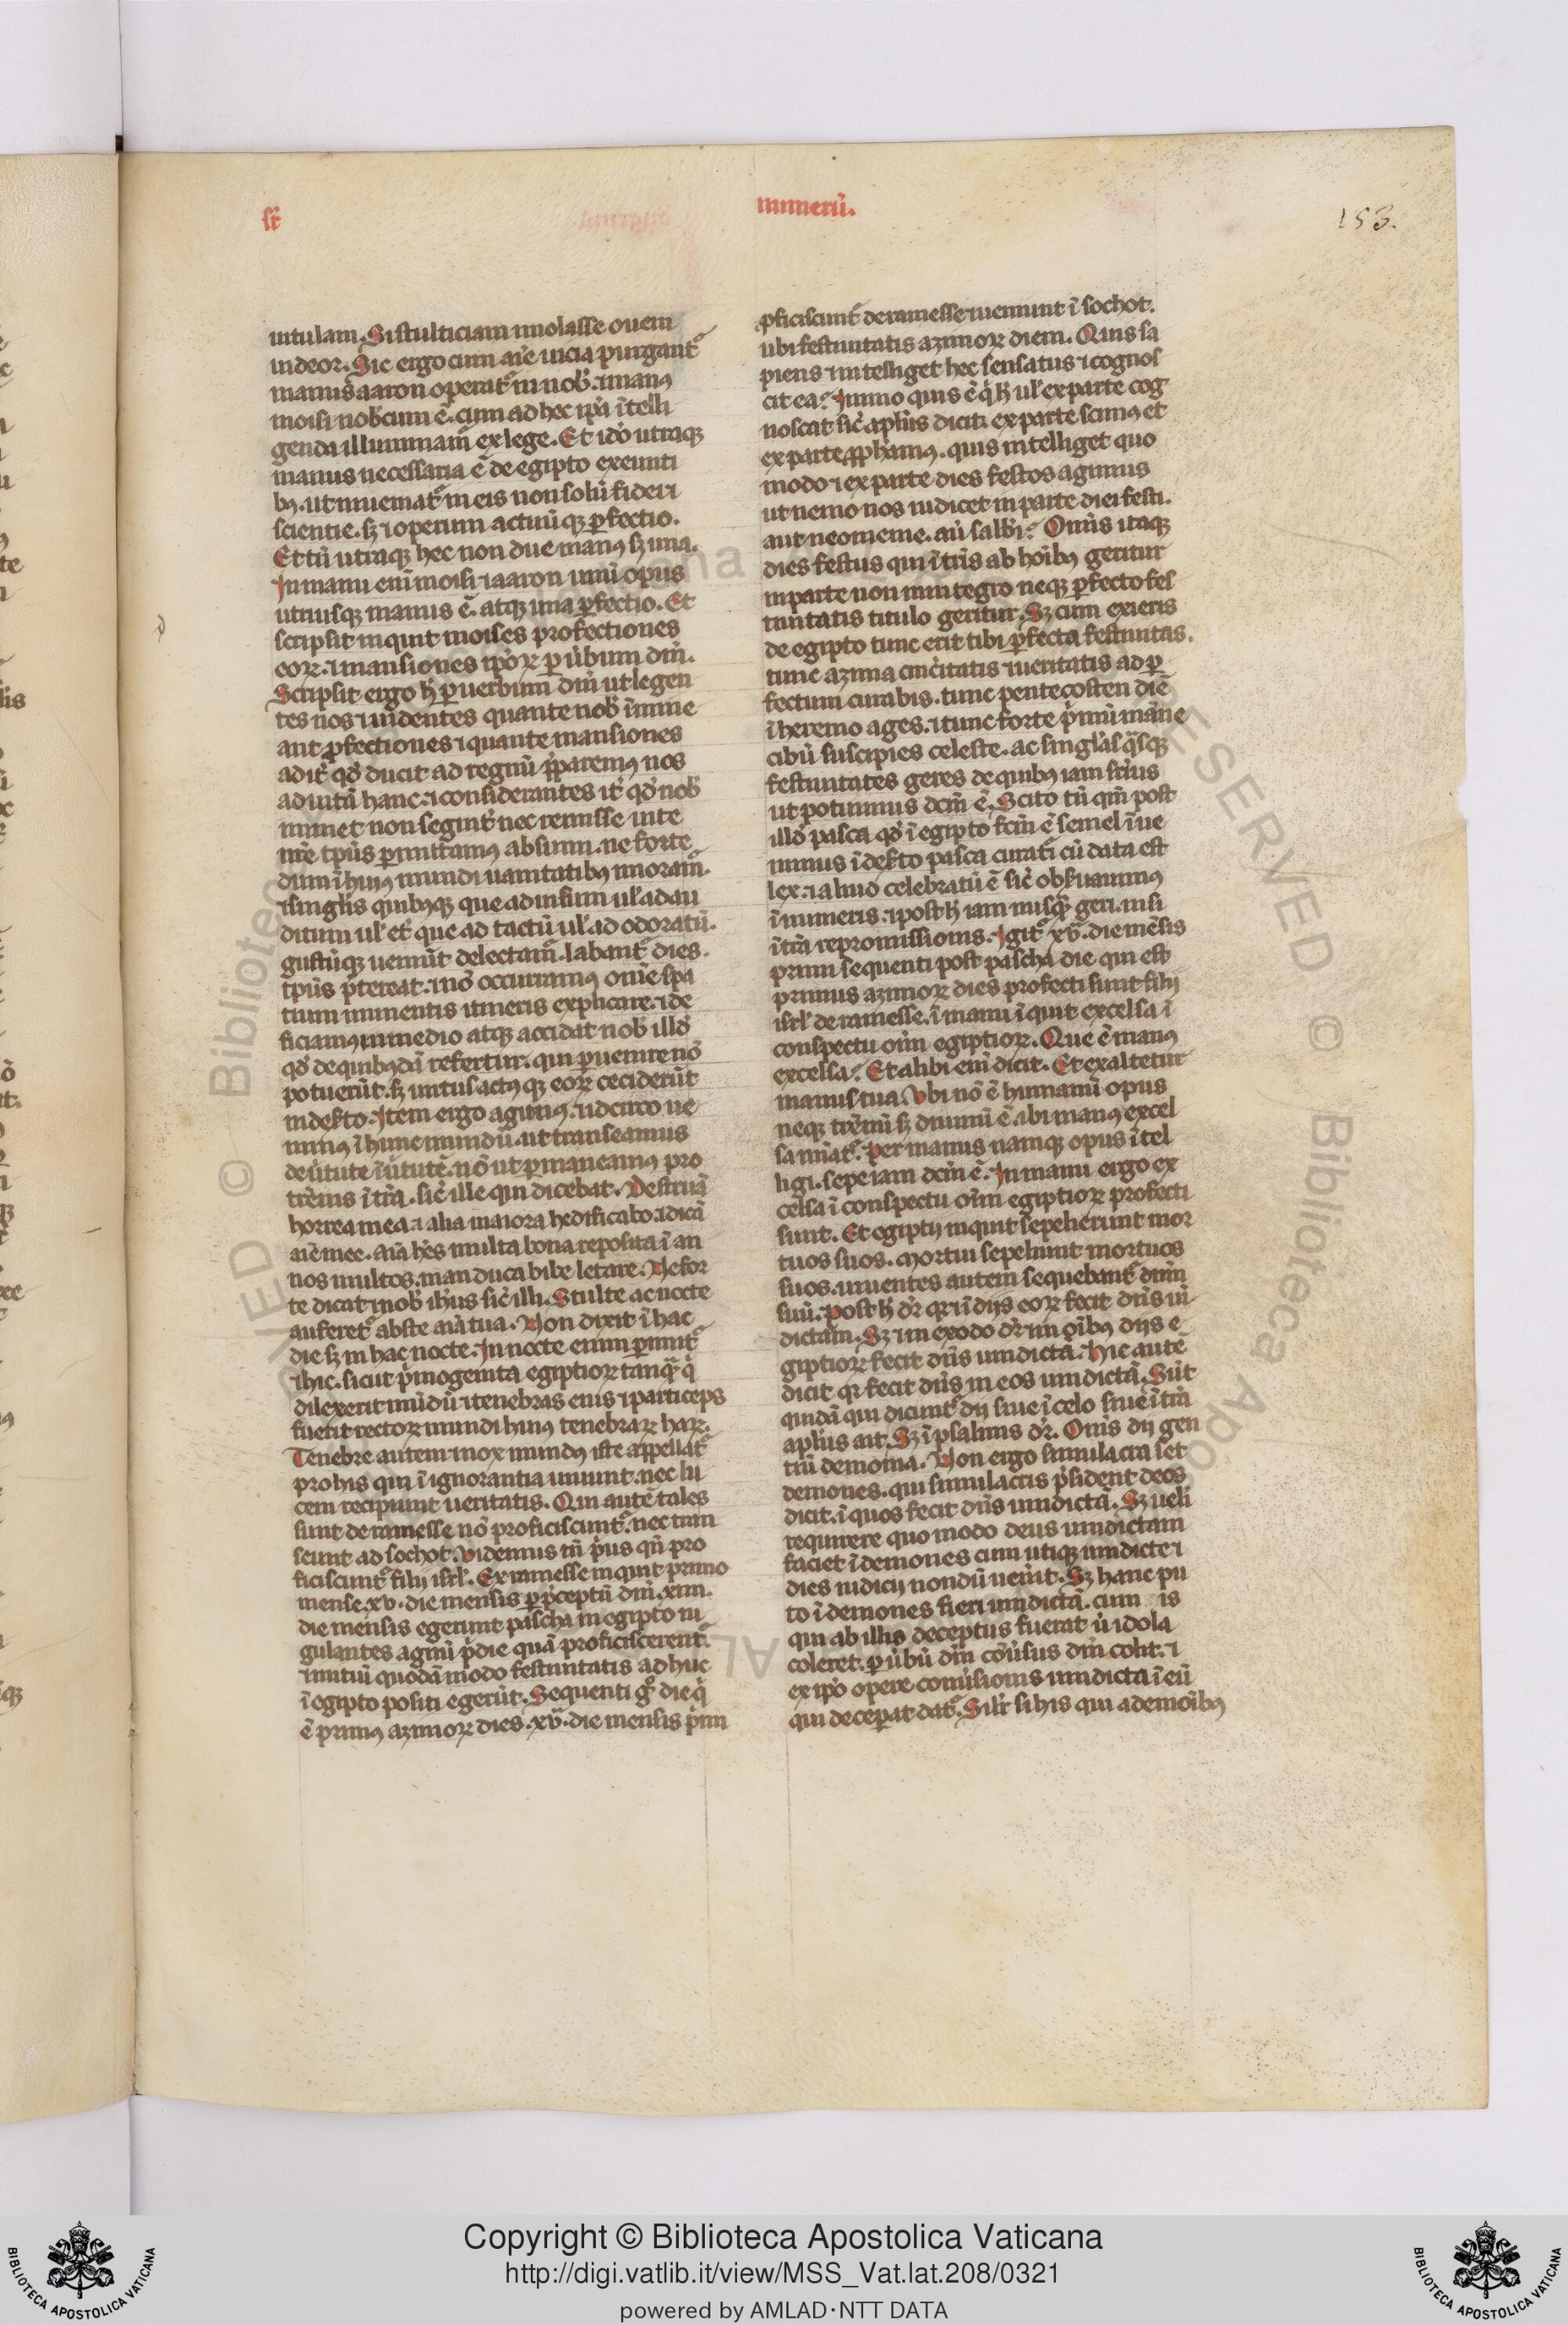 sr̄
numerū.
153.
uitulam. Si stulticiam inolasse ouem
uideor. Sic ergo cum aīe uicia purgant᷑
manus aaron operat᷑ in nob̄. ⁊ manꝰ
moisi nob̄cum ē. cum ad hec ip̄a ītelli
genda illuminam᷑ ex lege. Et id̄o utraqꝫ
manus necessaria ē de egipto exeunti
bꝫ. ut inueniat᷑ in eis non solū fidei ⁊
scientie. sꝫ ⁊ operum actuūqꝫ ꝑfectio.
Et tn̄ utraqꝫ hec non due manꝰ sꝫ una.
In manu eni moisi ⁊ aaron unū opus
utriusqꝫ manus ē. atqꝫ una ꝑfectio. Et
scripsit inquit moises profectiones
eoꝝ. ⁊ mansiones ip̄oꝝ ꝑ ūbum dn̄i.
Scripsit ergo h̄ ꝑ uerbum dn̄i ut legen
tes nos ⁊ uidentes quante nob̄ īmine
ant ꝓfectiones ⁊ quante mansiones
ad it̄ qd̄ ducit ad regnū p̄paremꝰ nos
ad uitā hanc. ⁊ considerantes it̄ qd̄ nob̄
iminet non segnit̄ nec remisse uite
nr̄e tp̄us ꝑmittamꝰ absumi. ne forte
dum ī huiꝰ mundi uanitatibꝰ moram᷑.
⁊ singlis quibꝰqꝫ que ad uisum ul̄ ad au
ditum ul̄ et̄ que ad tactū ul̄ ad odoratū.
gustūqꝫ ueniūt delectam᷑. labant᷑ dies.
tp̄us p̄tereat. ⁊ nō occurramꝰ om̄e spa
tium iminentis itineris explicare. ⁊ de
ficiamꝰ in medio atqꝫ accidat nob̄ illd̄
qd̄ de quibꝰdā refertur. qui ꝑuenire nō
potuerūt. sꝫ untusactꝰqꝫ eoꝝ ceciderūt
in deserto. Item ergo agimꝰ. ⁊ idcirco ue
nimꝰ ī hunc mundū. ut transeamus
de ūtute ī ūtutē. nō ut ꝑmaneamꝰ pro
trēnis ī tr̄a. sic̄ ille qui dicebat. Destruā
horrea mea. ⁊ alia maiora hedificabo. ⁊ dicā
aīe mee. aīa hēs multa bona reposita ī an
nos multos. manduca bibe letare. Ne for
te dicat ⁊ nob̄ ih̄us sic̄ illi. Stulte ac nocte
auferet᷑ abs te aīa tua. Non dixit ī hac
die sꝫ in hac nocte. In nocte enim ꝑimit᷑
⁊ hic. sicut p̄mogenita egiptioꝝ tanqꝫ q̇
dilexerit mūdū ⁊ tenebras eius ⁊ particeps
fuerit rectoꝝ mundi huiꝰ tenebraꝝ haꝝ.
Tenebre autem ⁊ nox mundꝰ iste appellat᷑
pro his qui ī ignorantia uiuunt. nec lu
cem recipiunt ueritatis. Qui autē tales
sunt de ramesse nō proficiscunt᷑. nec tran
seunt ad sochot. Videmus tn̄ p̄us qn̄ pro
ficiscunt᷑ filij isrl̄. Ex ramesse inquit primo
mense. xv. die mensis ꝑ p̄ceptū dn̄i. xiiii.
die mensis egerunt pascha in egipto iu
gulantes agnū p̄die quā proficiscerent᷑.
⁊ initiū quodā modo festiuitatis ad huc
ī egipto positi egerūt. Sequenti gͦ die q̇
ē primꝰ azimoꝝ dies. xv̄. die mensis p̄mi
ꝓficiscunt᷑ de ramesse ⁊ ueniunt ī sochot.
ubi festiuitatis azimoꝝ diem. Quis sa
piens ⁊ intelliget hec sensatus ⁊ cognos
cit ea? Immo quis ē q̇ h̄ ul̄ ex parte cog
noscat sic̄ apl̄us dicit. ex parte scimꝰ et
ex parte ꝓphamꝰ. quis intelliget quo
modo ⁊ ex parte dies festos agimus
ut nemo nos iudicet in parte diei festi.
aut neomenie. aū sabb̄i? Om̄is itaqꝫ
dies festus qui ī tr̄is ab hoīb̄ geritur
in parte non in integro neqꝫ ꝑfecto fes
tiuitatis titulo geritur. Sꝫ cum exieris
de egipto tunc erit tibi ꝑfecta festiuitas.
tunc azima cinc̄itatis ⁊ ueritatis ad ꝑ
fectum curabis. tunc pentecosten diē
ī heremo ages. ⁊ tunc forte p̄mū māne
cibū suscipies celeste. ac singlas q̄sqꝫ
festiuitates geres de quibꝰ iam sr̄ius
ut potuimus dcm̄ ē. Scito tn̄ qm̄ post
illd̄ pasca qd̄ ī egipto fcm̄ ē semel īue
nimus ī deserto pasca curat᷑ cū data est
lex. ⁊ alino celebratū ē sic̄ obseruamus
ī numeris. ⁊ post h̄ iam nusqꝫ geri. nisi
ī tr̄a repromissionis. Igit᷑ xv̄. die mēsis
primi sequenti post pascha die qui est
primus azimoꝝ dies profecti sunt filij
isrl̄ de ramesse. ī manu īquit excelsa ī
conspectu oīm egiptioꝝ. Que ē manꝰ
excelsa? Et alibi eni dicit. Et exaltetur
manus tua. Vbi nō ē humanū opus
neqꝫ trēnū sꝫ diuinū ē. ibi manꝰ excel
sa niat᷑. per manus namqꝫ opus ītel
ligi. sepe iam dcm̄ ē. In manu ergo ex
celsa ī conspectu oīm egiptioꝝ profecti
sunt. Et egiptij inquit sepelierunt mor
tuos suos. Mortui sepeliunt mortuos
suos. uiuentes autem sequebant᷑ dn̄m
suū. post h̄ dr̄ qr̄ ⁊ ī dijs eoꝝ fecit dn̄s ui
dictam. Sꝫ in exodo dr̄ in oīb̄us dijs e
giptioꝝ fecit dn̄s uindictā. Hic autē
dicit qr̄ fecit dn̄s in eos uindictā. Sūt
quidā qui dicunt᷑ dij siue ī celo siue ī tr̄a
apl̄us ait. Sꝫ ī psalmis dr̄. Om̄s dij gen
tiū demonia. Non ergo simulacra set
demones. qui simulacris p̄sident deos
dicit. ī quos fecit dn̄s uindictā. Sꝫ ueli
requirere quo modo deus uindictam
faciet ī demones cum utiqꝫ uindicte ⁊
dies iudicij nondū uenit. Sꝫ hanc pu
to ī demones fieri uindictā. cum is
qui ab illis deceptus fuerat ū idola
coleret. ꝑ ūbū dn̄i cōūsus dn̄m colit. ⁊
ex ip̄o opere conūsionis uindicta ī eū
qui deceperat dat᷑. Silr̄ si his qui a demoīb̄us
Copyright © Biblioteca Apostolica Vaticana
http://digi.vatlib.it/view/MSS_Vat.lat.208/0321
powered by AMLAD·NTT DATA
BIBLIOTECA APOSTOLICA VATICANA
BIBLIOTECA APOSTOLICA VATICANA